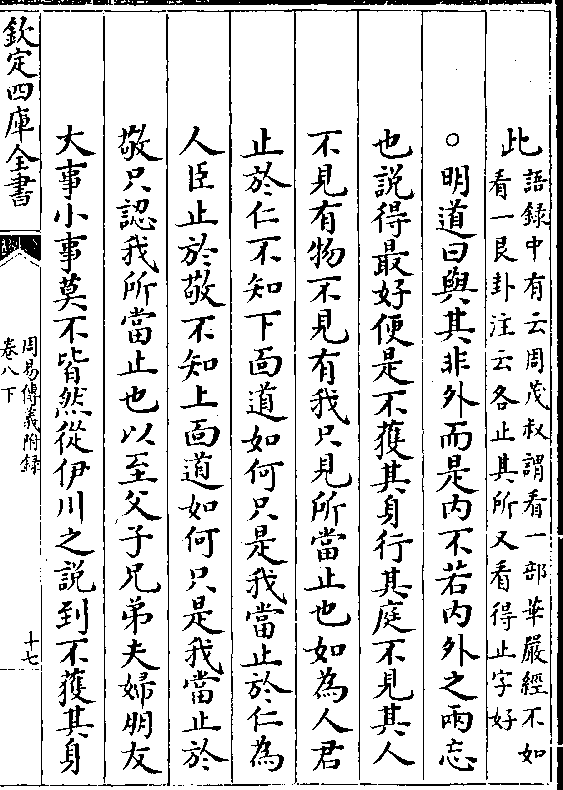 此
語録中有云周茂叔謂看一部華嚴經不如
看一艮卦注云各止其所又看得止字好
○明道曰與其非外而是内不若内外之兩忘
也説得最好便是不獲其身行其庭不見其人
不見有物不見有我只見所當止也如為人君
止於仁不知下面道如何只是我當止於仁為
人臣止於敬不知上面道如何只是我當止於
敬只認我所當止也以至父子兄弟夫婦朋友
大事小事莫不皆然從伊川之説到不獲其身
欽定四庫全書
周易傳義附録
卷八下
十七